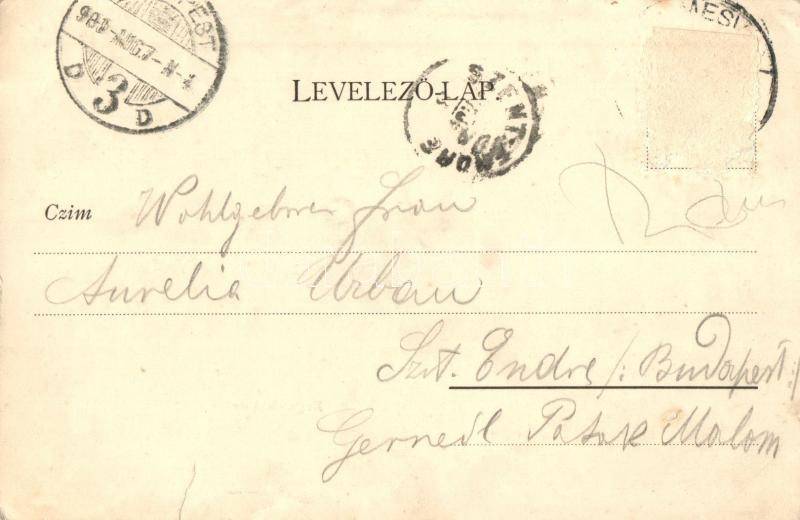 PEST
900 AUG. 7
D 3 D
LEVELEZŐ-LAP
SZENT-ENDRE
Czim Wohlgeboren Frau
Aurelia Urban
Szt. Endre /: Budapest :/
Patak Malom